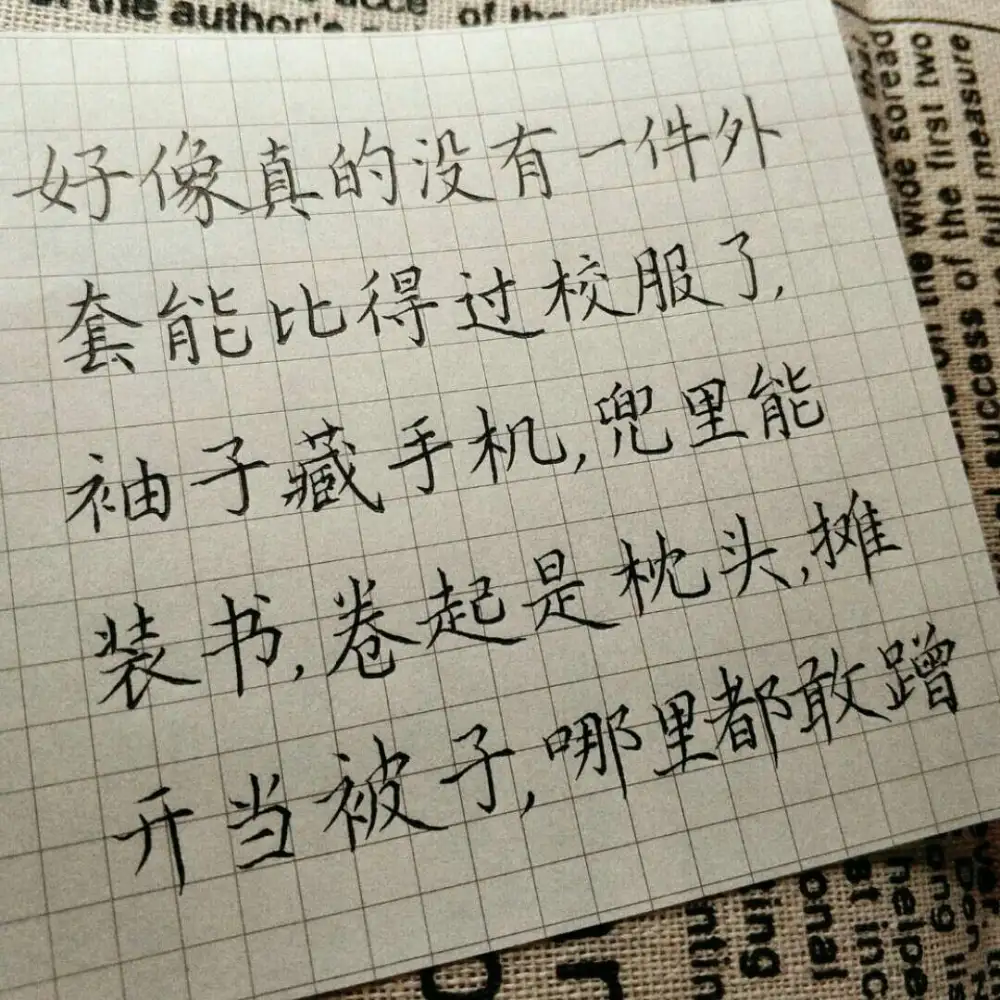 the author's
of the
好像真的没有一件外
套能比得过校服了,
袖子藏手机,兜里能
装书,卷起是枕头,摊
开当被子,哪里都敢蹭
wide soread
of the first two
full measure
success